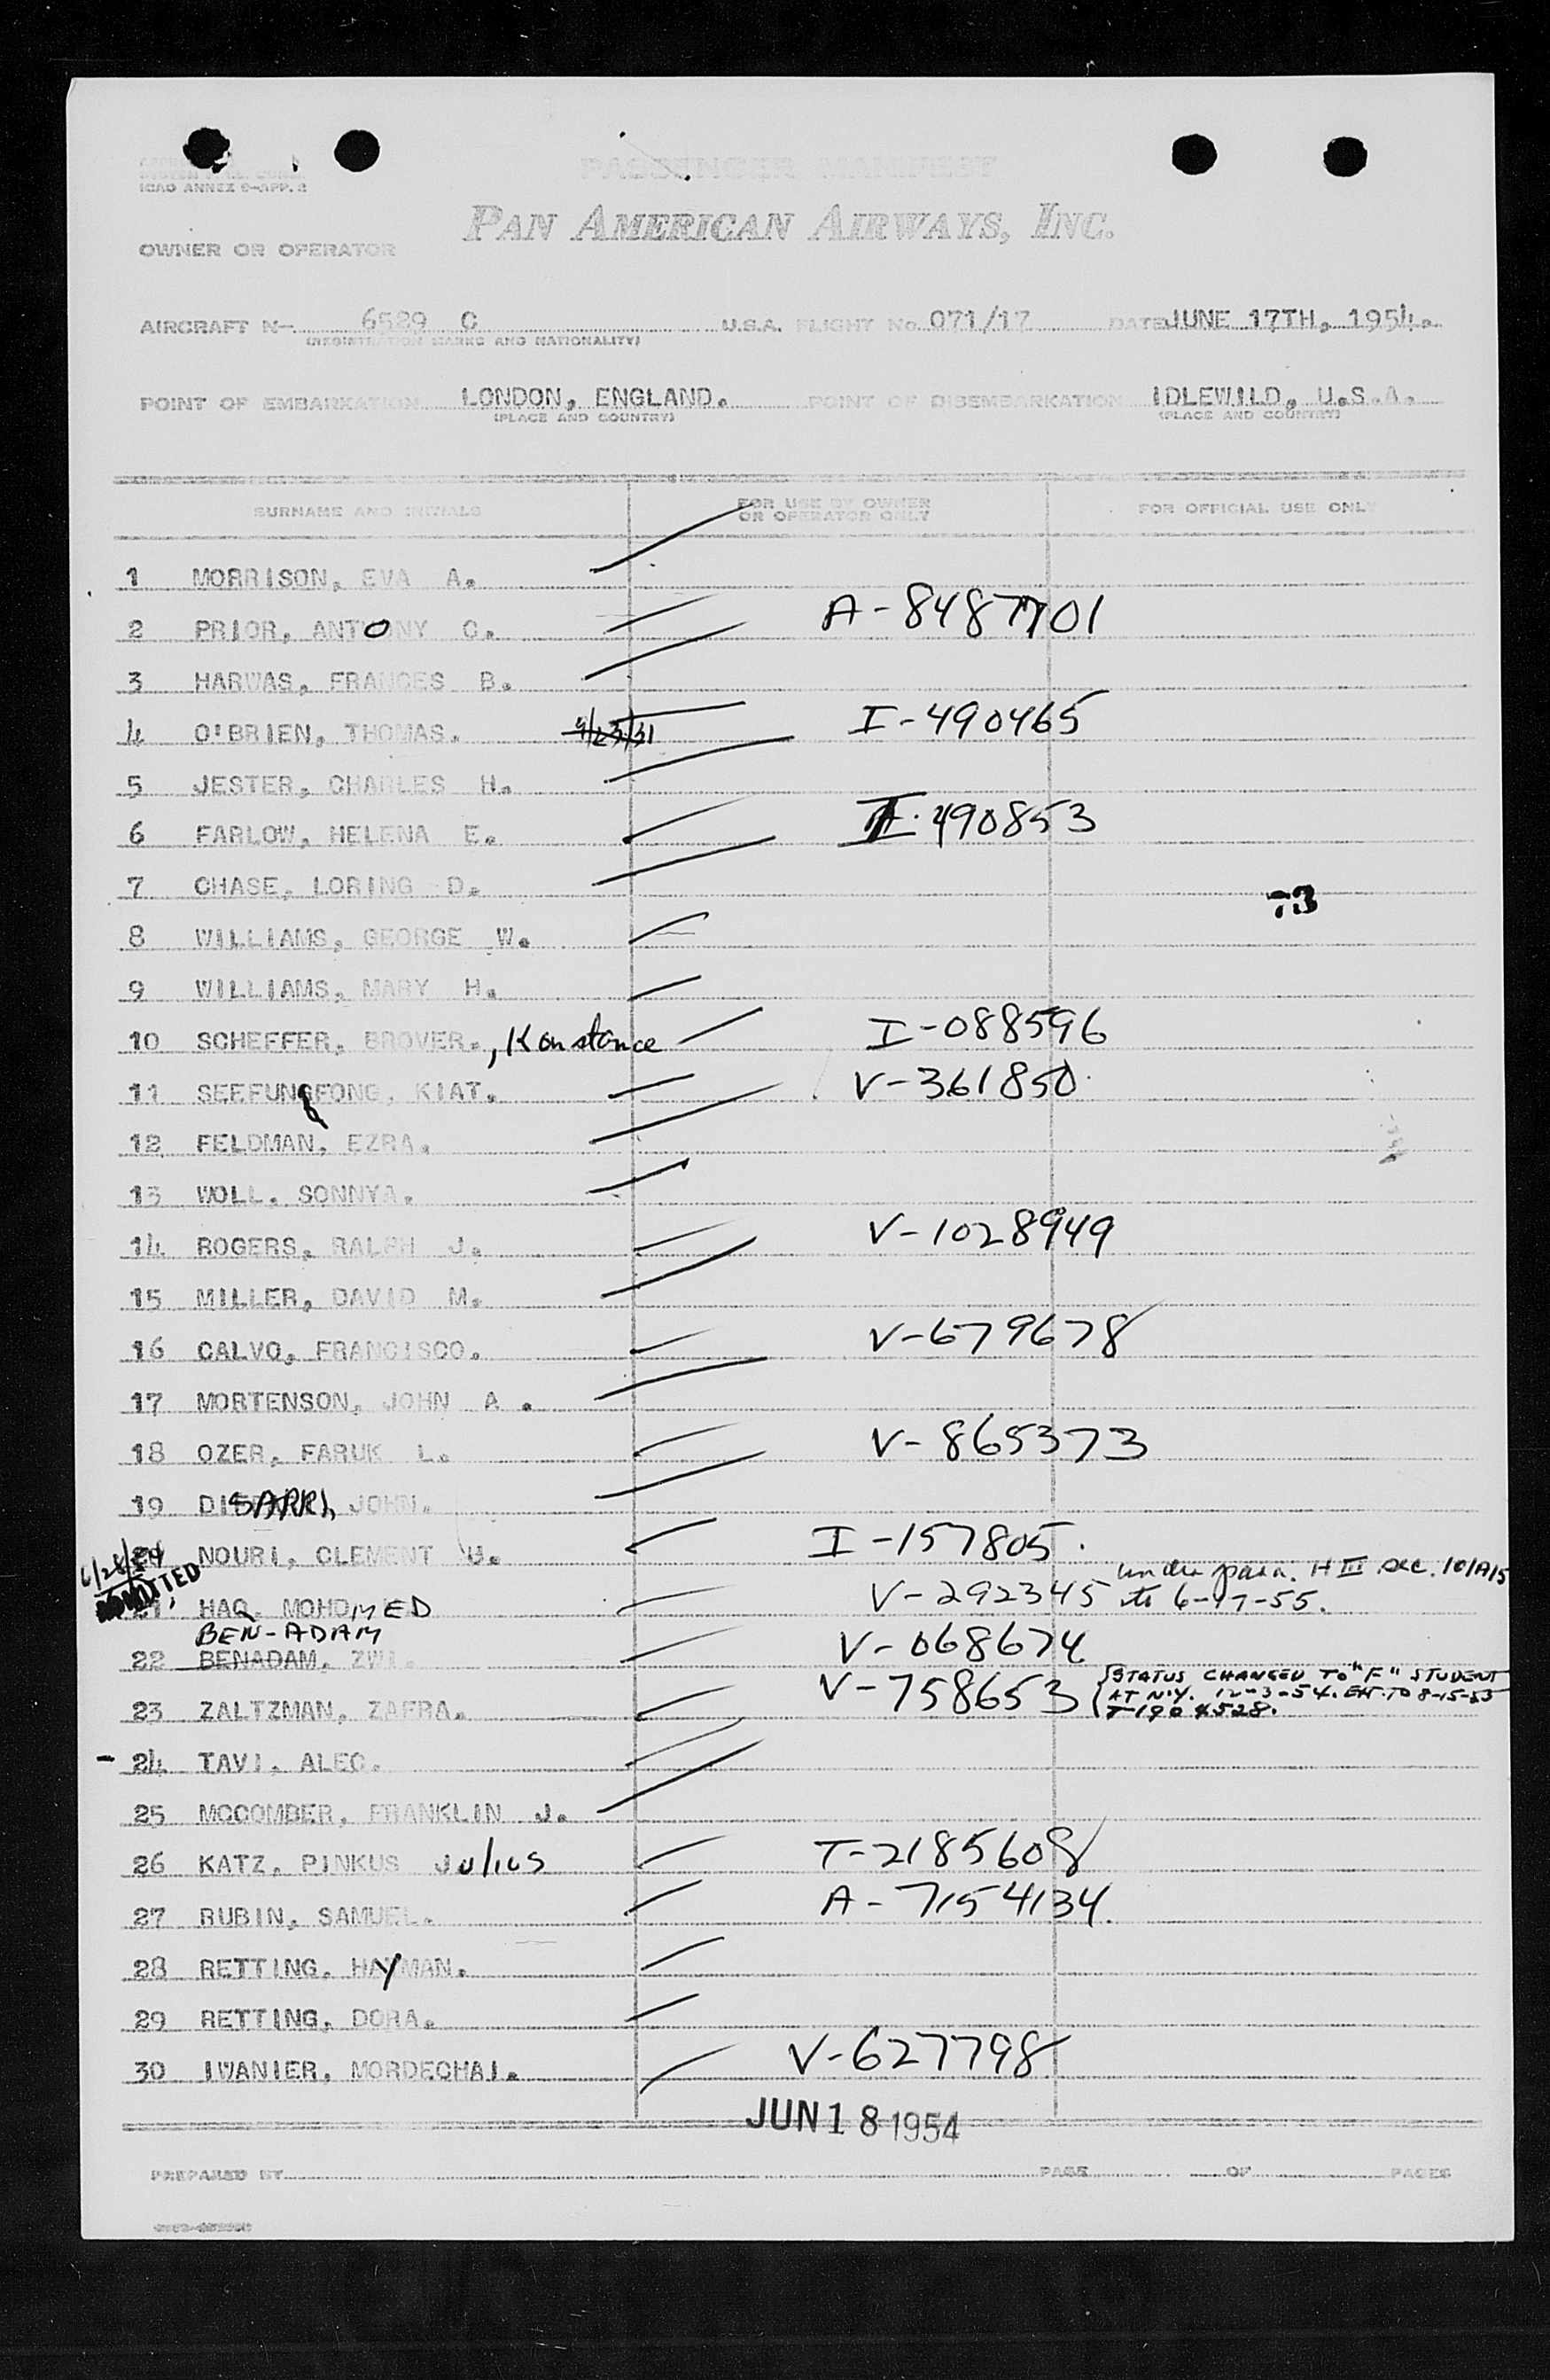 ICAO ANNEX 9-APP. 3
PASSENGER MANIFEST
PAN AMERICAN AIRWAYS, INC.
OWNER OR OPERATOR
AIRCRAFT N- 6529 C U.S.A. FLIGHT No. 071/17 DATE JUNE 17TH, 1954.
(REGISTRATION MARKS AND NATIONALITY)
POINT OF EMBARKATION LONDON, ENGLAND. POINT OF DISEMBARKATION IDLEWILD, U.S.A.
(PLACE AND COUNTRY) (PLACE AND COUNTRY)
SURNAME AND INITIALS FOR USE BY OWNER OR OPERATOR ONLY FOR OFFICIAL USE ONLY
1 MORRISON, EVA A.
2 PRIOR, ANTONY C. A-8487701
3 HARWAS, FRANCES B.
4 O'BRIEN, THOMAS. 9/23/31 I-490465
5 JESTER, CHARLES H.
6 FARLOW, HELENA E. I-490853
7 CHASE, LORING D.
73
8 WILLIAMS, GEORGE W.
9 WILLIAMS, MARY H.
10 SCHEFFER, BROVER., Konstance I-088596
11 SEEFUNGFONG, KIAT. V-361850
12 FELDMAN, EZRA.
13 WOLL, SONNYA.
14 ROGERS, RALPH J. V-1028949
15 MILLER, DAVID M.
16 CALVO, FRANCISCO. V-679678
17 MORTENSON, JOHN A.
18 OZER, FARUK L. V-865373
19 DISARRI, JOHN.
20 NOURI, CLEMENT U. I-157805.
6/28/54 ADMITTED under para. H III sec. 101A15
21 HAQ, MOHDMMED V-292345 to 6-17-55.
BEN-ADAM
22 BENADAM, ZWI. V-068674
23 ZALTZMAN, ZAFRA. V-758653 {STATUS CHANGED TO "F" STUDENT
AT N.Y. 12-3-54. EXT. TO 8-15-55
T-1904528.
- 24 TAVI, ALEC.
25 MCCOMBER, FRANKLIN J.
26 KATZ, PINKUS Julius T-2185608
27 RUBIN, SAMUEL. A-7154134.
28 RETTING, HAYMAN.
29 RETTING, DORA.
30 IWANIER, MORDECHAI. V-627798
JUN 18 1954
PREPARED BY PAGE OF PAGES